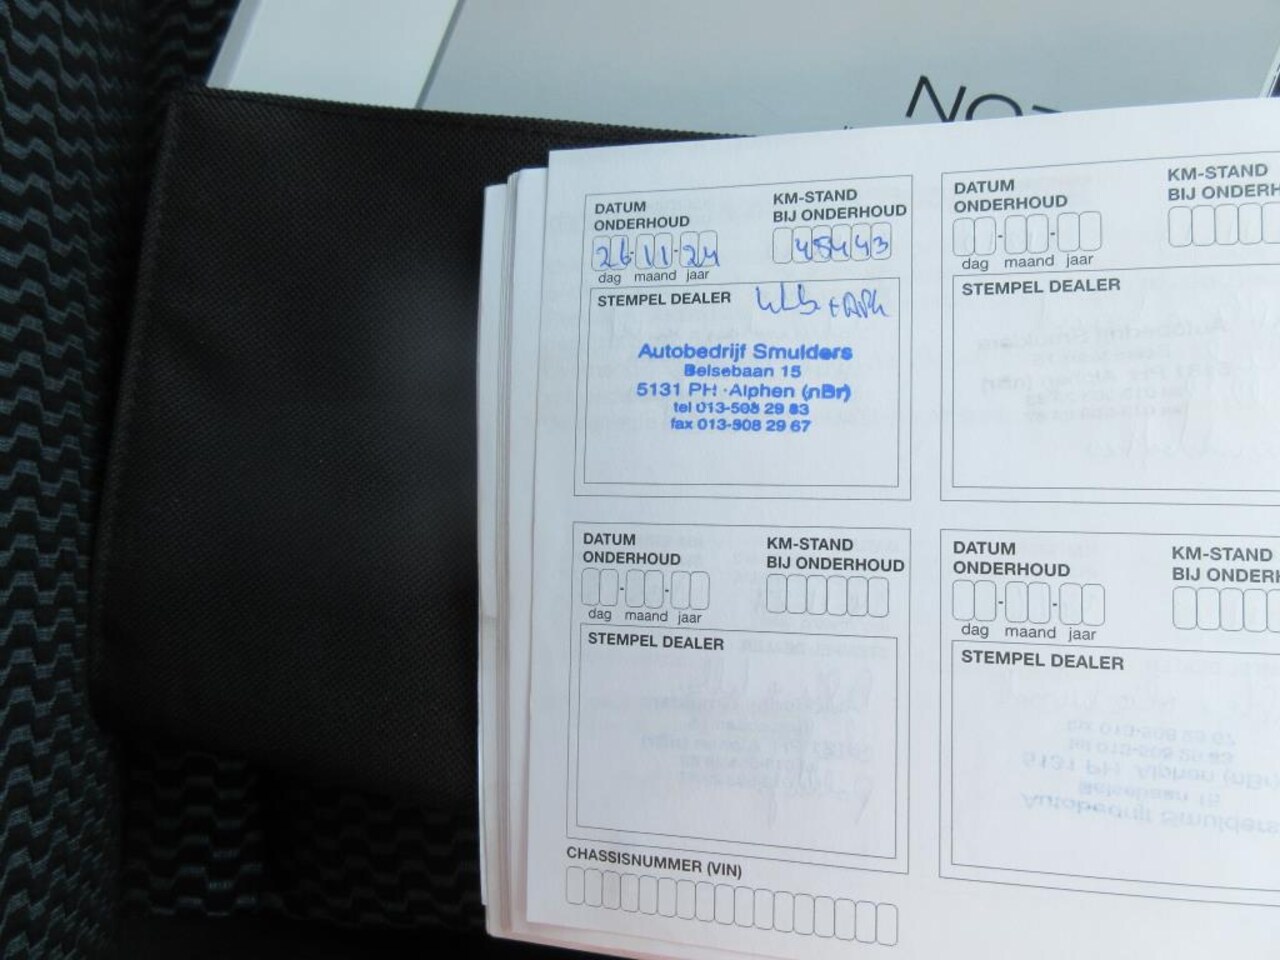 DATUM
ONDERHOUD
KM-STAND
BIJ ONDERHOUD
26-11-24
48443
dag maand jaar
STEMPEL DEALER
Autobedrijf Smulders
Belsebaan 15
5131 PH Alphen (nBr)
tel 013-508 29 83
fax 013-508 29 67
DATUM
ONDERHOUD
KM-STAND
BIJ ONDERH
dag maand jaar
STEMPEL DEALER
DATUM
ONDERHOUD
KM-STAND
BIJ ONDERHOUD
dag maand jaar
STEMPEL DEALER
DATUM
ONDERHOUD
KM-STAND
BIJ ONDERH
dag maand jaar
STEMPEL DEALER
CHASSISNUMMER (VIN)